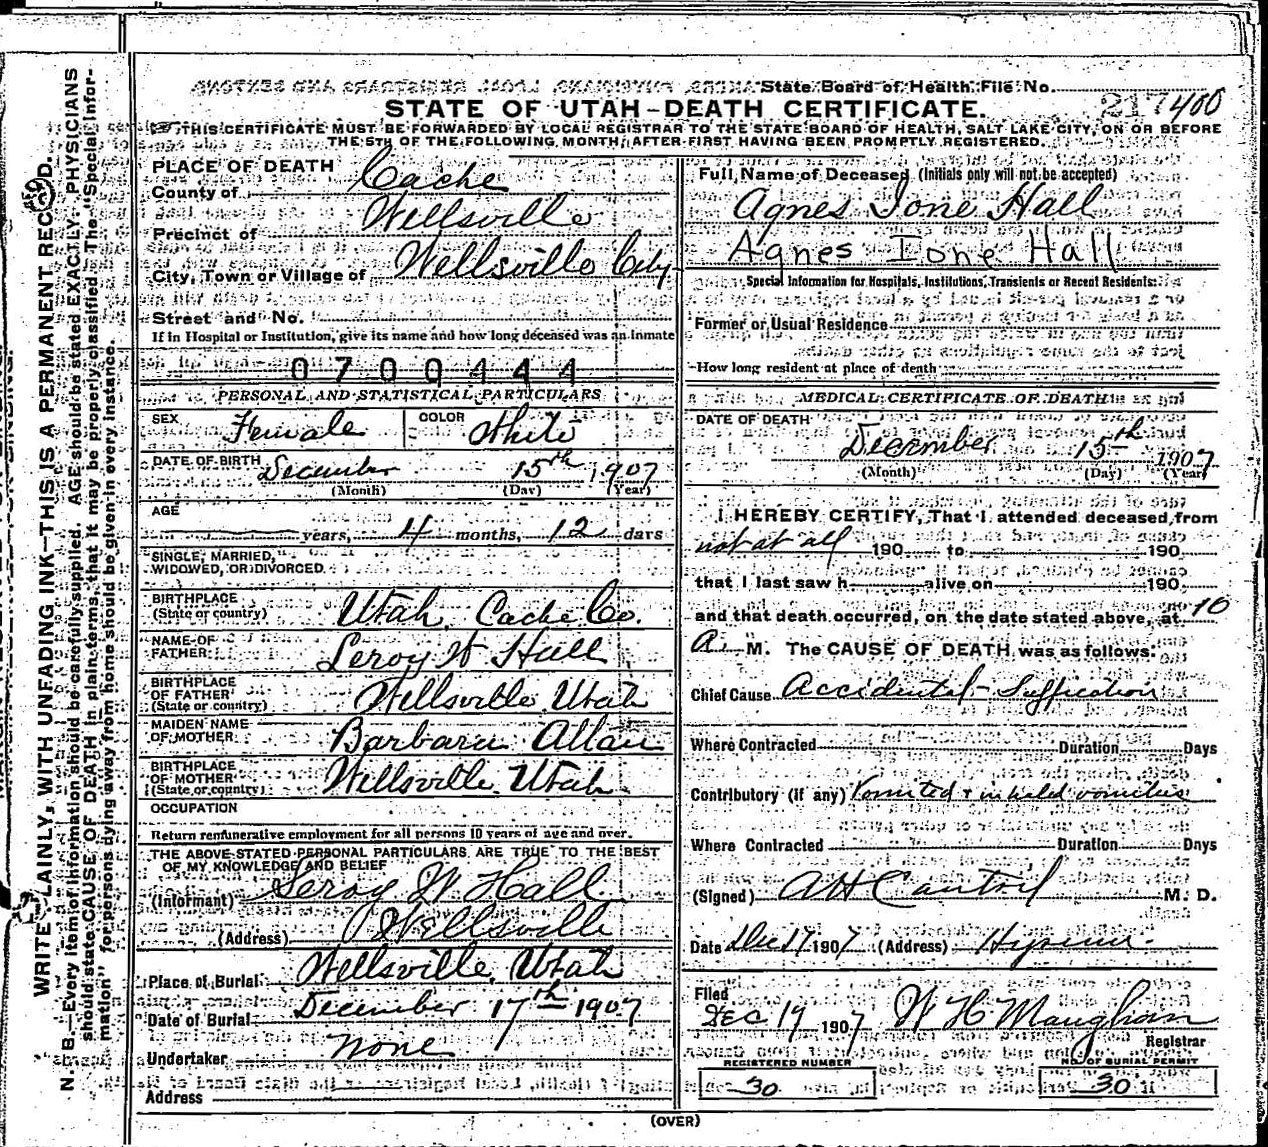 State Board of Health File No. 217400
STATE OF UTAH–DEATH CERTIFICATE.
THIS CERTIFICATE MUST BE FORWARDED BY LOCAL REGISTRAR TO THE STATE BOARD OF HEALTH, SALT LAKE CITY, ON OR BEFORE
THE 5TH OF THE FOLLOWING MONTH, AFTER FIRST HAVING BEEN PROMPTLY REGISTERED.
WRITE PLAINLY, WITH UNFADING INK—THIS IS A PERMANENT RECORD.
N. B.—Every item of information should be carefully supplied. AGE should be stated EXACTLY. PHYSICIANS
should state CAUSE OF DEATH in plain terms, that it may be properly classified. The "Special Infor-
mation" for persons dying away from home should be given in every instance.
PLACE OF DEATH
County of Cache
Precinct of Wellsville
City, Town or Village of Wellsville City
Street and No.
If in Hospital or Institution, give its name and how long deceased was an inmate
0700444
PERSONAL AND STATISTICAL PARTICULARS
SEX Female COLOR White
DATE OF BIRTH December 15th 1907
(Month) (Day) (Year)
AGE
years, 4 months, 12 days
SINGLE, MARRIED,
WIDOWED, OR DIVORCED
BIRTHPLACE
(State or country) Utah. Cache Co.
NAME OF
FATHER Leroy W Hall
BIRTHPLACE
OF FATHER
(State or country) Wellsville Utah
MAIDEN NAME
OF MOTHER Barbara Allan
BIRTHPLACE
OF MOTHER
(State or country) Wellsville Utah
OCCUPATION
Return remunerative employment for all persons 10 years of age and over.
THE ABOVE STATED PERSONAL PARTICULARS ARE TRUE TO THE BEST
OF MY KNOWLEDGE AND BELIEF
(Informant) Leroy W Hall
(Address) Wellsville
Place of Burial Wellsville, Utah
Date of Burial December 17th 1907
Undertaker None
Address
Full Name of Deceased (Initials only will not be accepted)
Agnes Ione Hall
Agnes Ione Hall
Special Information for Hospitals, Institutions, Transients or Recent Residents:
Former or Usual Residence
How long resident at place of death
MEDICAL CERTIFICATE OF DEATH
DATE OF DEATH
December 15th 1907
(Month) (Day) (Year)
I HEREBY CERTIFY, That I attended deceased from
not at all 190 to 190
that I last saw h alive on 190
and that death occurred, on the date stated above, at 10
A. M. The CAUSE OF DEATH was as follows:
Chief Cause Accidental Suffication
Where Contracted Duration Days
Contributory (if any) Vomited + inhaled vomitus
Where Contracted Duration Days
(Signed) A H Cantril M. D.
Date Dec 17 1907 (Address) Hyrum
Filed
Dec 19 1907 W H Maughan
Registrar
REGISTERED NUMBER NO. OF BURIAL PERMIT
30 30
(OVER)